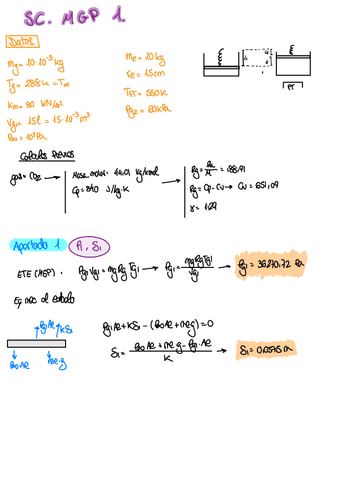 SC. MGP 1.
Datos
mg = 10·10⁻³ kg
Tg = 288K = T∞
Km = 80 kN/m²
Vg1 = 15l = 15·10⁻³ m³
P∞ = 10⁵ Pa
me = 10 kg
re = 15cm
TFT = 550K
Pg2 = 60kPa
FT
Cálculos Previos
gas = CO₂
Masa molar: 44,01 kg/kmol
Cp = 840 J/kg·K
Rg = Ru/M = 188,91
Rg = Cp - Cv → Cv = 651,09
γ = 1,29
Apartado 1
P1, δ1
ETE (MGP).
Pg1 Vg1 = mg Rg Tg1 → Pg1 = mg Rg Tg1 / Vg1 → Pg1 = 36270,72 Pa
Eq mec al émbolo
Pg1Ae
Kδ1
P∞Ae
me·g
Pg1Ae + Kδ1 - (P∞Ae + me g) = 0
δ1 = P∞Ae + me·g - Pg1·Ae / K